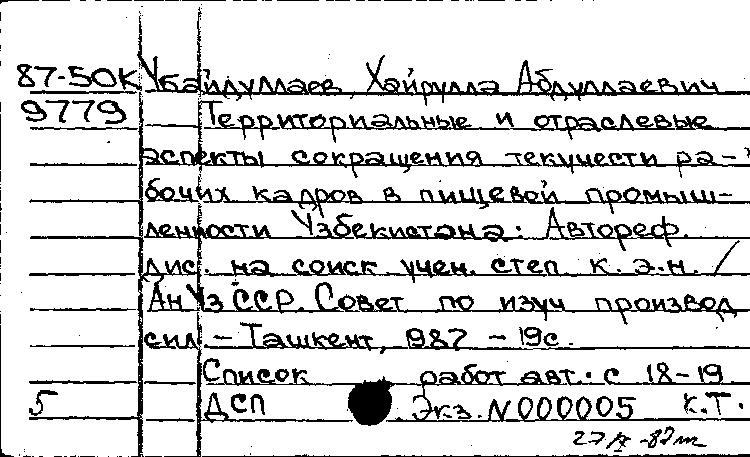 87-50К Убайдуллаев, Хайрулла Абдуллаевич
9779 Территориальные и отраслевые
аспекты сокращения текучести ра-
бочих кадров в пищевой промыш-
ленности Узбекистана: Автореф.
дис. на соиск учен. степ к. э.н. /
Ан Уз ССР. Совет по изуч производ
сил. – Ташкент, 987 – 19с.
Список работ авт.: с 18-19
5 ДСП Экз. N 000005 К.Т.